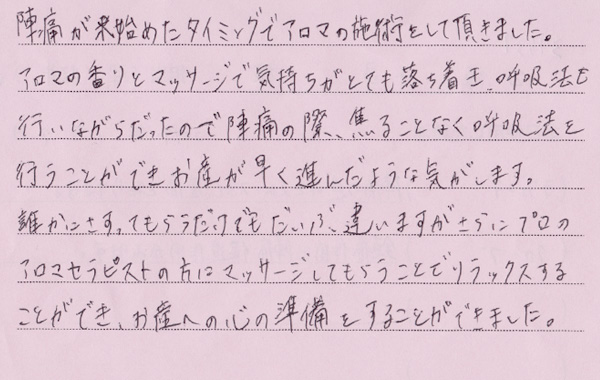 陣痛が来始めたタイミングでアロマの施術をして頂きました。
アロマの香りとマッサージで気持ちがとても落ち着き、呼吸法も
行いながらだったので陣痛の際、焦ることなく呼吸法を
行うことができお産が早く進んだような気がします。
誰かにさすってもらうだけでもだいぶ違いますがさらにプロの
アロマセラピストの方にマッサージしてもらうことでリラックスする
ことができ、お産への心の準備をすることができました。